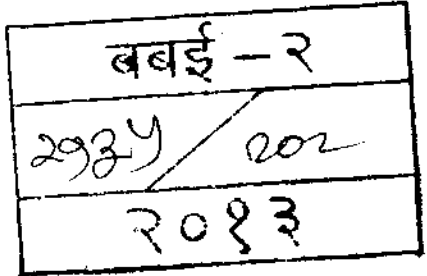 बबई - २
२१३५ / २०२
२०१३